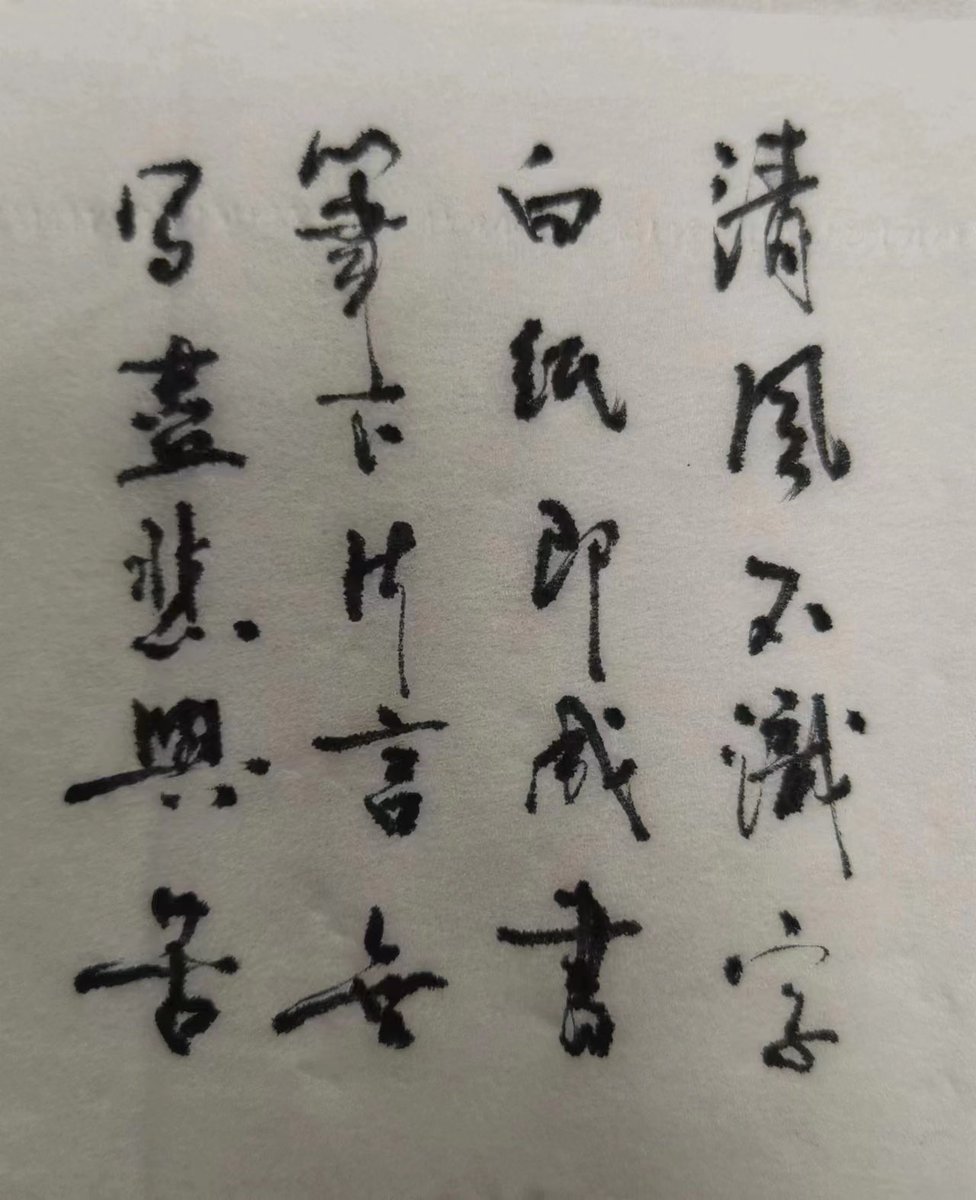 清風不識字
白紙即成書
筆下片言無
写盡悲與苦